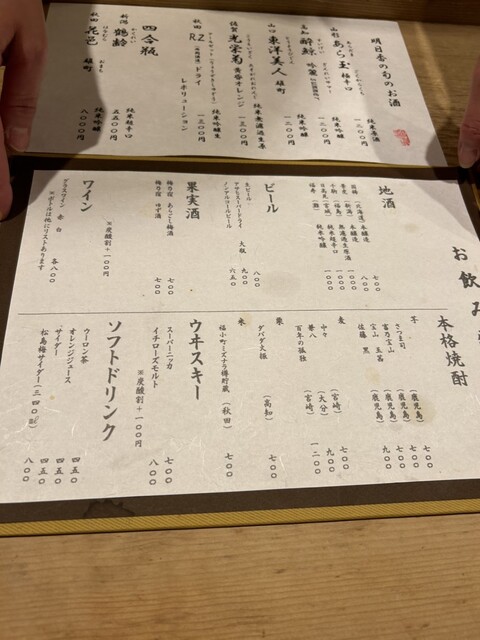 明日香の旬のお酒
山形 あら玉 極辛口
純米吟醸
一二〇〇
高知 酔鯨 吟麗
純米吟醸
一二〇〇
山口 東洋美人 雄町
純米吟醸
一二〇〇
佐賀 光栄菊 黄昏オレンジ
純米無濾過生原
一三〇〇
秋田 RZ ドライ レボリューション
純米吟醸生
一三〇〇
四合瓶
新潟 鶴齢
純米超辛口
五五〇〇
秋田 花邑 雄町
純米吟醸
八〇〇〇
お飲み
地酒
果実酒
梅乃宿 あらごし梅酒
七〇〇
梅乃宿 ゆず酒
七〇〇
※炭酸割+一〇〇円
ビール
生ビール
八〇〇
アサヒスーパードライ 大瓶
九〇〇
ノンアルコールビール
六五〇
ワイン
グラスワイン 赤 白
各八〇〇
※ボトルは他にリストあります
本格焼酎
芋
さつま司
(鹿児島)
七〇〇
富乃宝山
(鹿児島)
宝山 玉茜
(鹿児島)
佐藤 黒
(鹿児島)
九〇〇
麦
中々
(宮崎)
七〇〇
兼八
(大分)
九〇〇
百年の孤独
(宮崎)
一二〇〇
栗
ダバダ火振
(高知)
七〇〇
米
福小町ミズナラ樽貯蔵
(秋田)
七〇〇
ウヰスキー
スーパーニッカ
七〇〇
イチローズモルト
八〇〇
※炭酸割+一〇〇円
ソフトドリンク
ウーロン茶
四五〇
オレンジジュース
四五〇
サイダー
四五〇
松島梅サイダー(三四〇㎖)
八〇〇